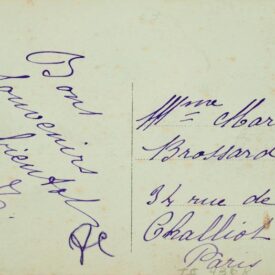 Bons
souvenirs
bientot
Mme Mar
Brossard
34 rue de
Challiot
Paris